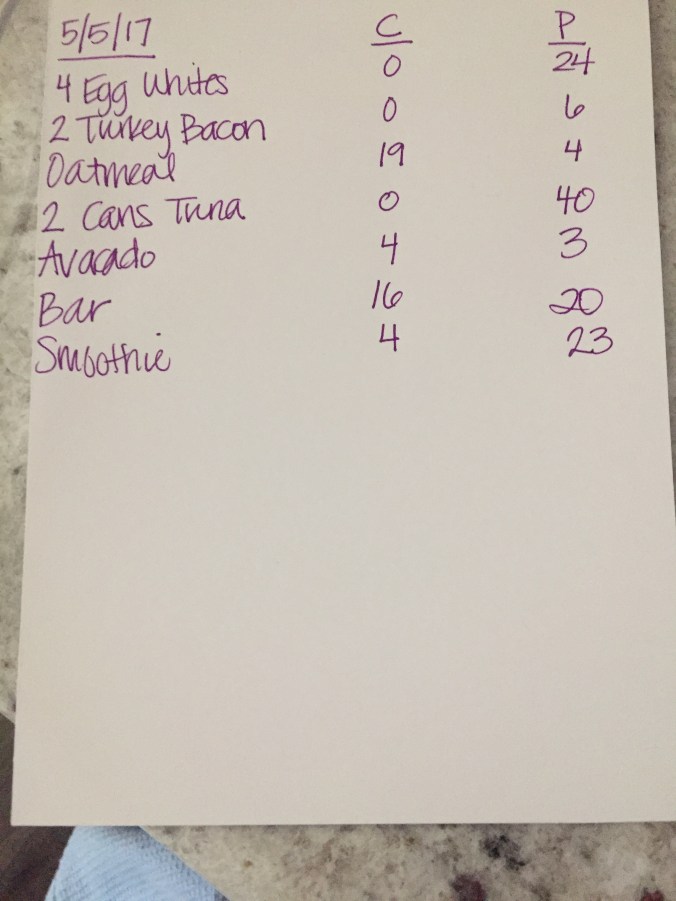 5/5/17 C P
4 Egg Whites 0 24
2 Turkey Bacon 0 6
Oatmeal 19 4
2 Cans Tuna 0 40
Avacado 4 3
Bar 16 20
Smoothie 4 23